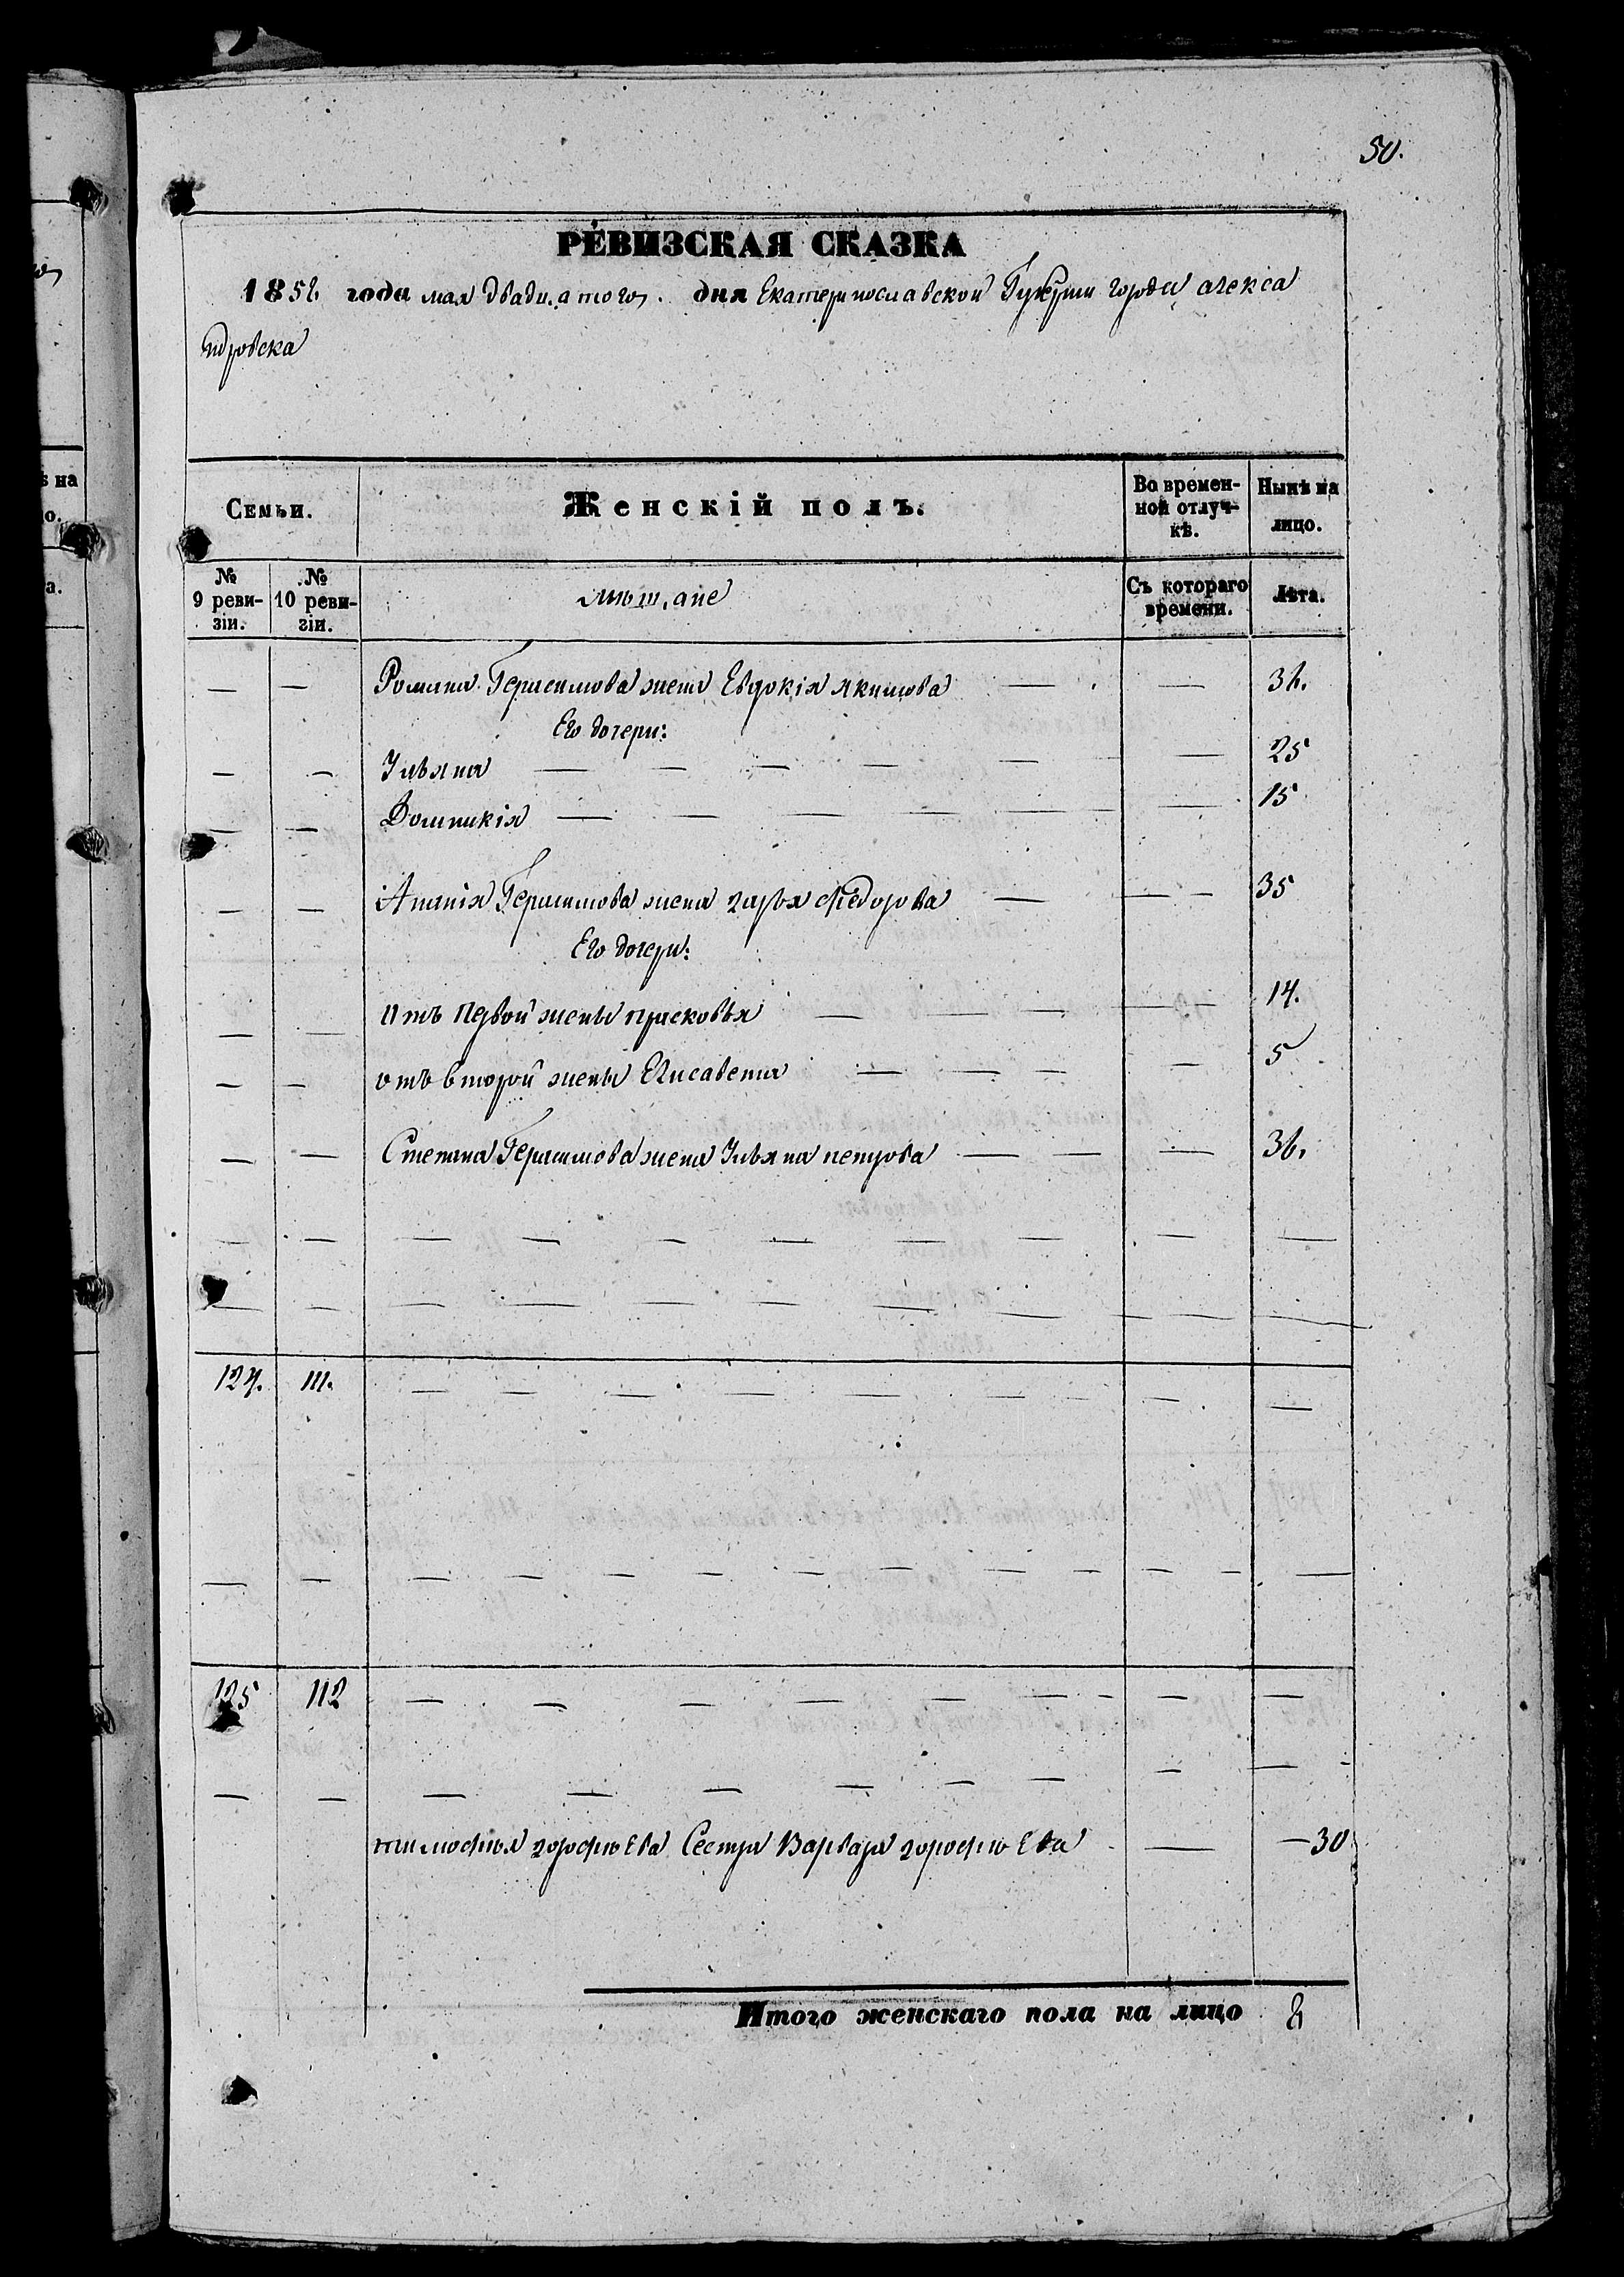 50.
РЕВИЗСКАЯ СКАЗКА
1858 года мая двадцатого дня Екатеринославской Губернии города алекса
ндровска
Семьи. Женскій полъ. Во времен-ной отлуч-кѣ. Нынѣ на лицо.
№ 9 реви-зіи. № 10 реви-зіи. мѣщане Съ котораго времени. Лѣта.
— — Романа Герасимова жена Евдокія якимова — — 
Его дочери:
— — Ульяна — — 25
— — Домникія — — 15
— — Ананія Герасимова жена дарья Федорова — — 35
Его дочери:
— — отъ первой жены прасковья — — 14.
— — отъ второй жены Елисавета — — 5
— — Степана Герасимова жена Ульяна петрова — — 36.
— — — — — — — — — —
— — — — — — — — — —
124. 111. — — — — — — — —
— — — — — — — — — —
125 112 — — — — — — — —
— — — — — — — — — —
тимофѣя дорофѣева Сестра Варвара дорофѣева — — 30
Итого женскаго пола на лицо 8
на
о.
а.